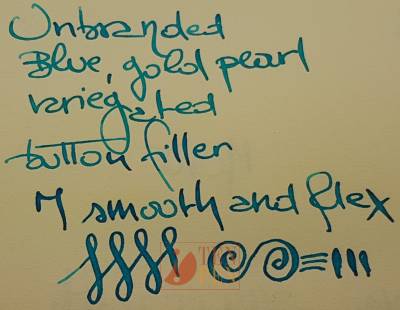 Unbranded
Blue, gold pearl
variegated
button filler
M smooth and flex